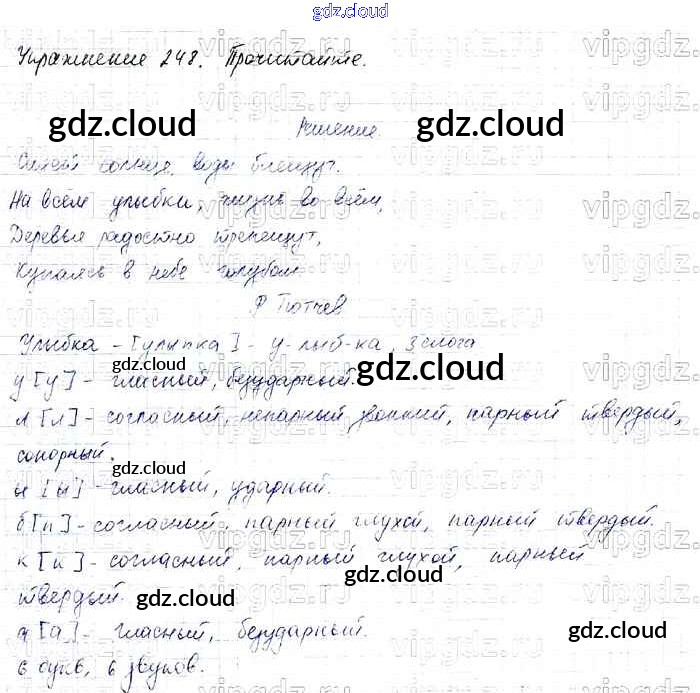 gdz.cloud
Упражнение 248. Прочитайте.
gdz.cloud gdz.cloud
Решение.
Сияет солнце, воды блещут.
На всём улыбка, жизнь во всём,
Деревья радостно трепещут,
Купаясь в небе голубом
Ф Тютчев
Улыбка - [улыпка] - у-лыб-ка, 3 слога
у [у] - гласный, безударный.
gdz.cloud gdz.cloud
л [л] - согласный, непарный звонкий, парный твердый,
сонорный.
gdz.cloud
ы [ы] - гласный, ударный.
б [п] - согласный, парный глухой, парный твердый.
к [к] - согласный, парный глухой, парный
gdz.cloud
твердый.
gdz.cloud
а [а] - гласный, безударный.
gdz.cloud
6 букв, 6 звуков.